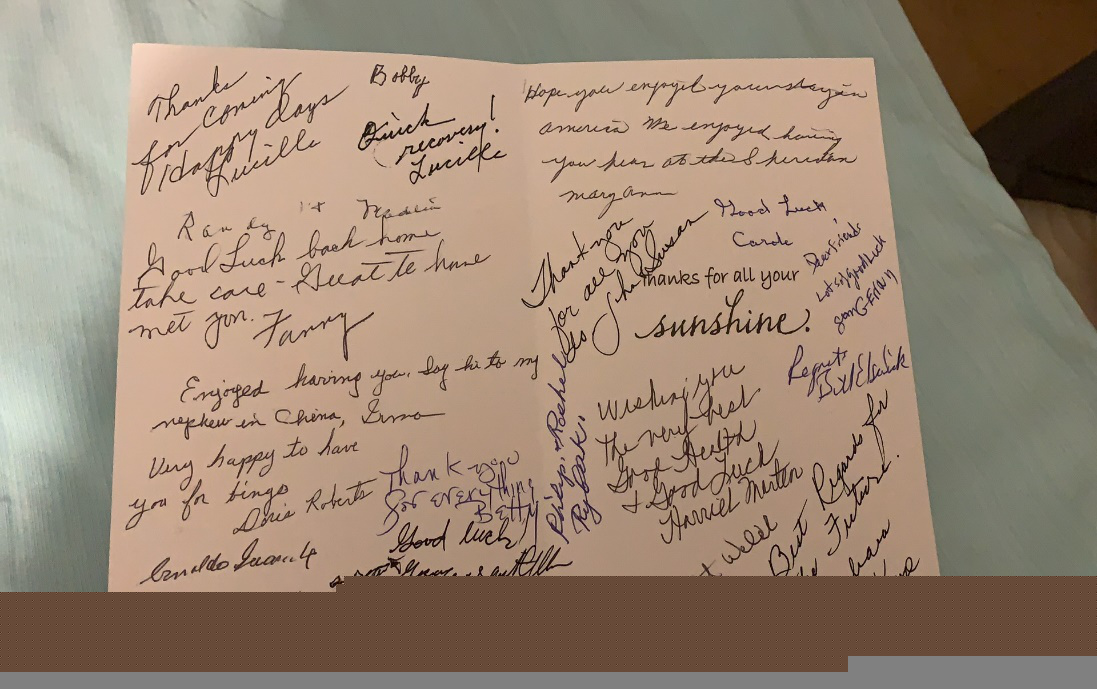 Thanks
for coming
Happy Days
Lucille
Bobby
Quick
recovery!
Lucille
Randy
Good Luck back home
take care - Great to have
met you.
Fanny
Enjoyed having you. Say hi to my
nephew in China, Irma
Very happy to have
you for bingo
Doris Roberts
Thank you
for everything
Betty
Good luck
Hope you enjoyed your stay in
america We enjoyed having
you hear at the Sheridan
mary ann
Good Luck
Carole
Thank you
for all you
do
Susan
Dear Friends
Lots of good luck
thanks for all your
sunshine.
Regards
Wishing you
the very best
Good Health
& Good Luck
Harriet
Best Regards for
Future.